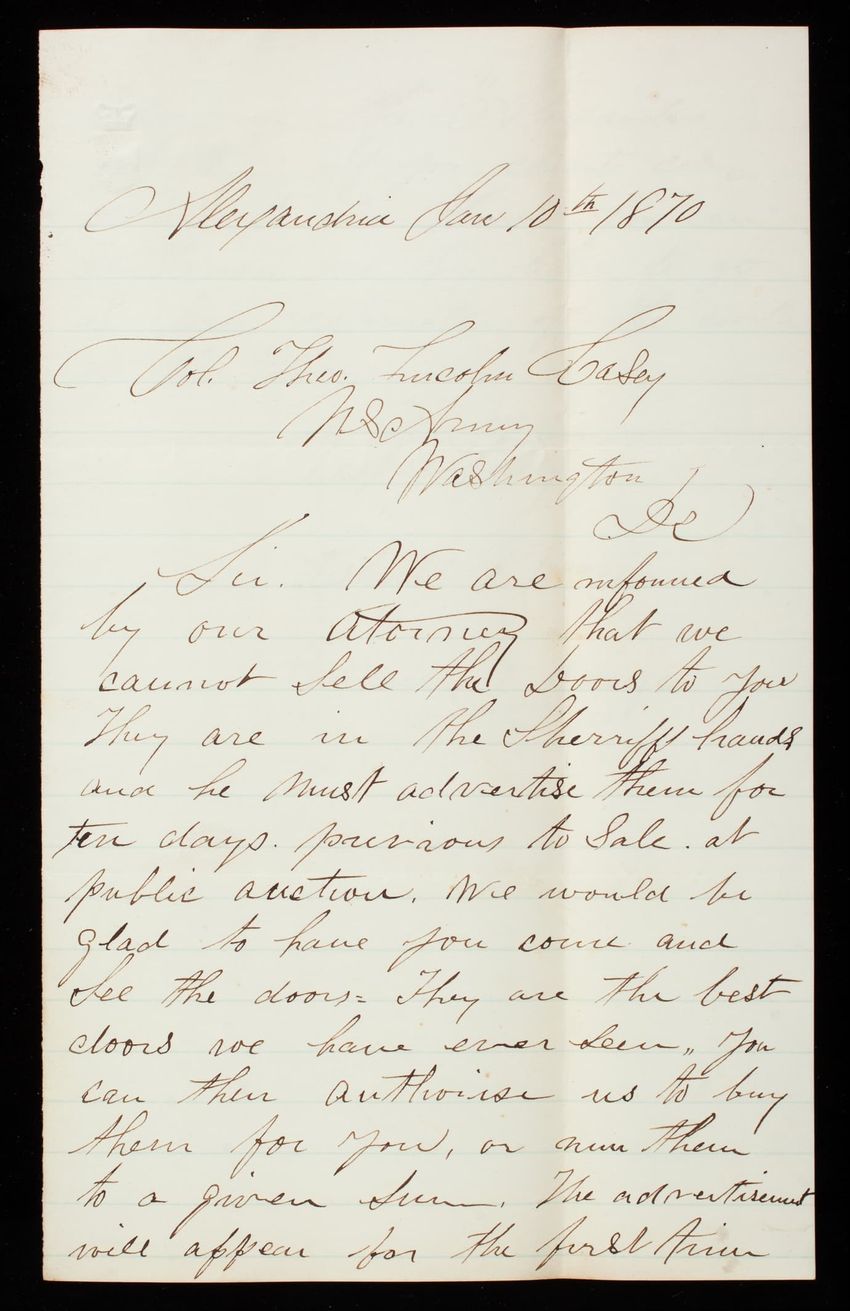 Alexandria Jan 10th 1870
Col. Theo. Lincoln Casey
U S Army
Washington
DC
Sir. We are informed
by our Atorney that we
cannot Sell the Doors to you
They are in the Sherriffs hands
and he must advertise them for
ten days. previous to Sale. at
public auction. We would be
glad to have you come and
See the doors= They are the best
doors we have ever seen,, You
can then authorise us to buy
them for you, or run them
to a given Sum. The advertisement
will appear for the first time